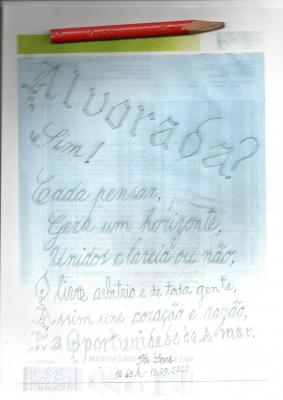 Alvorada?
Sim!
Cada pensar,
Gera um horizonte,
Unidos clareia ou não,
O livre arbítrio é de toda gente,
Assim une coração e razão,
E a Oportunidade de amar.
16:45h - 13.09.2022